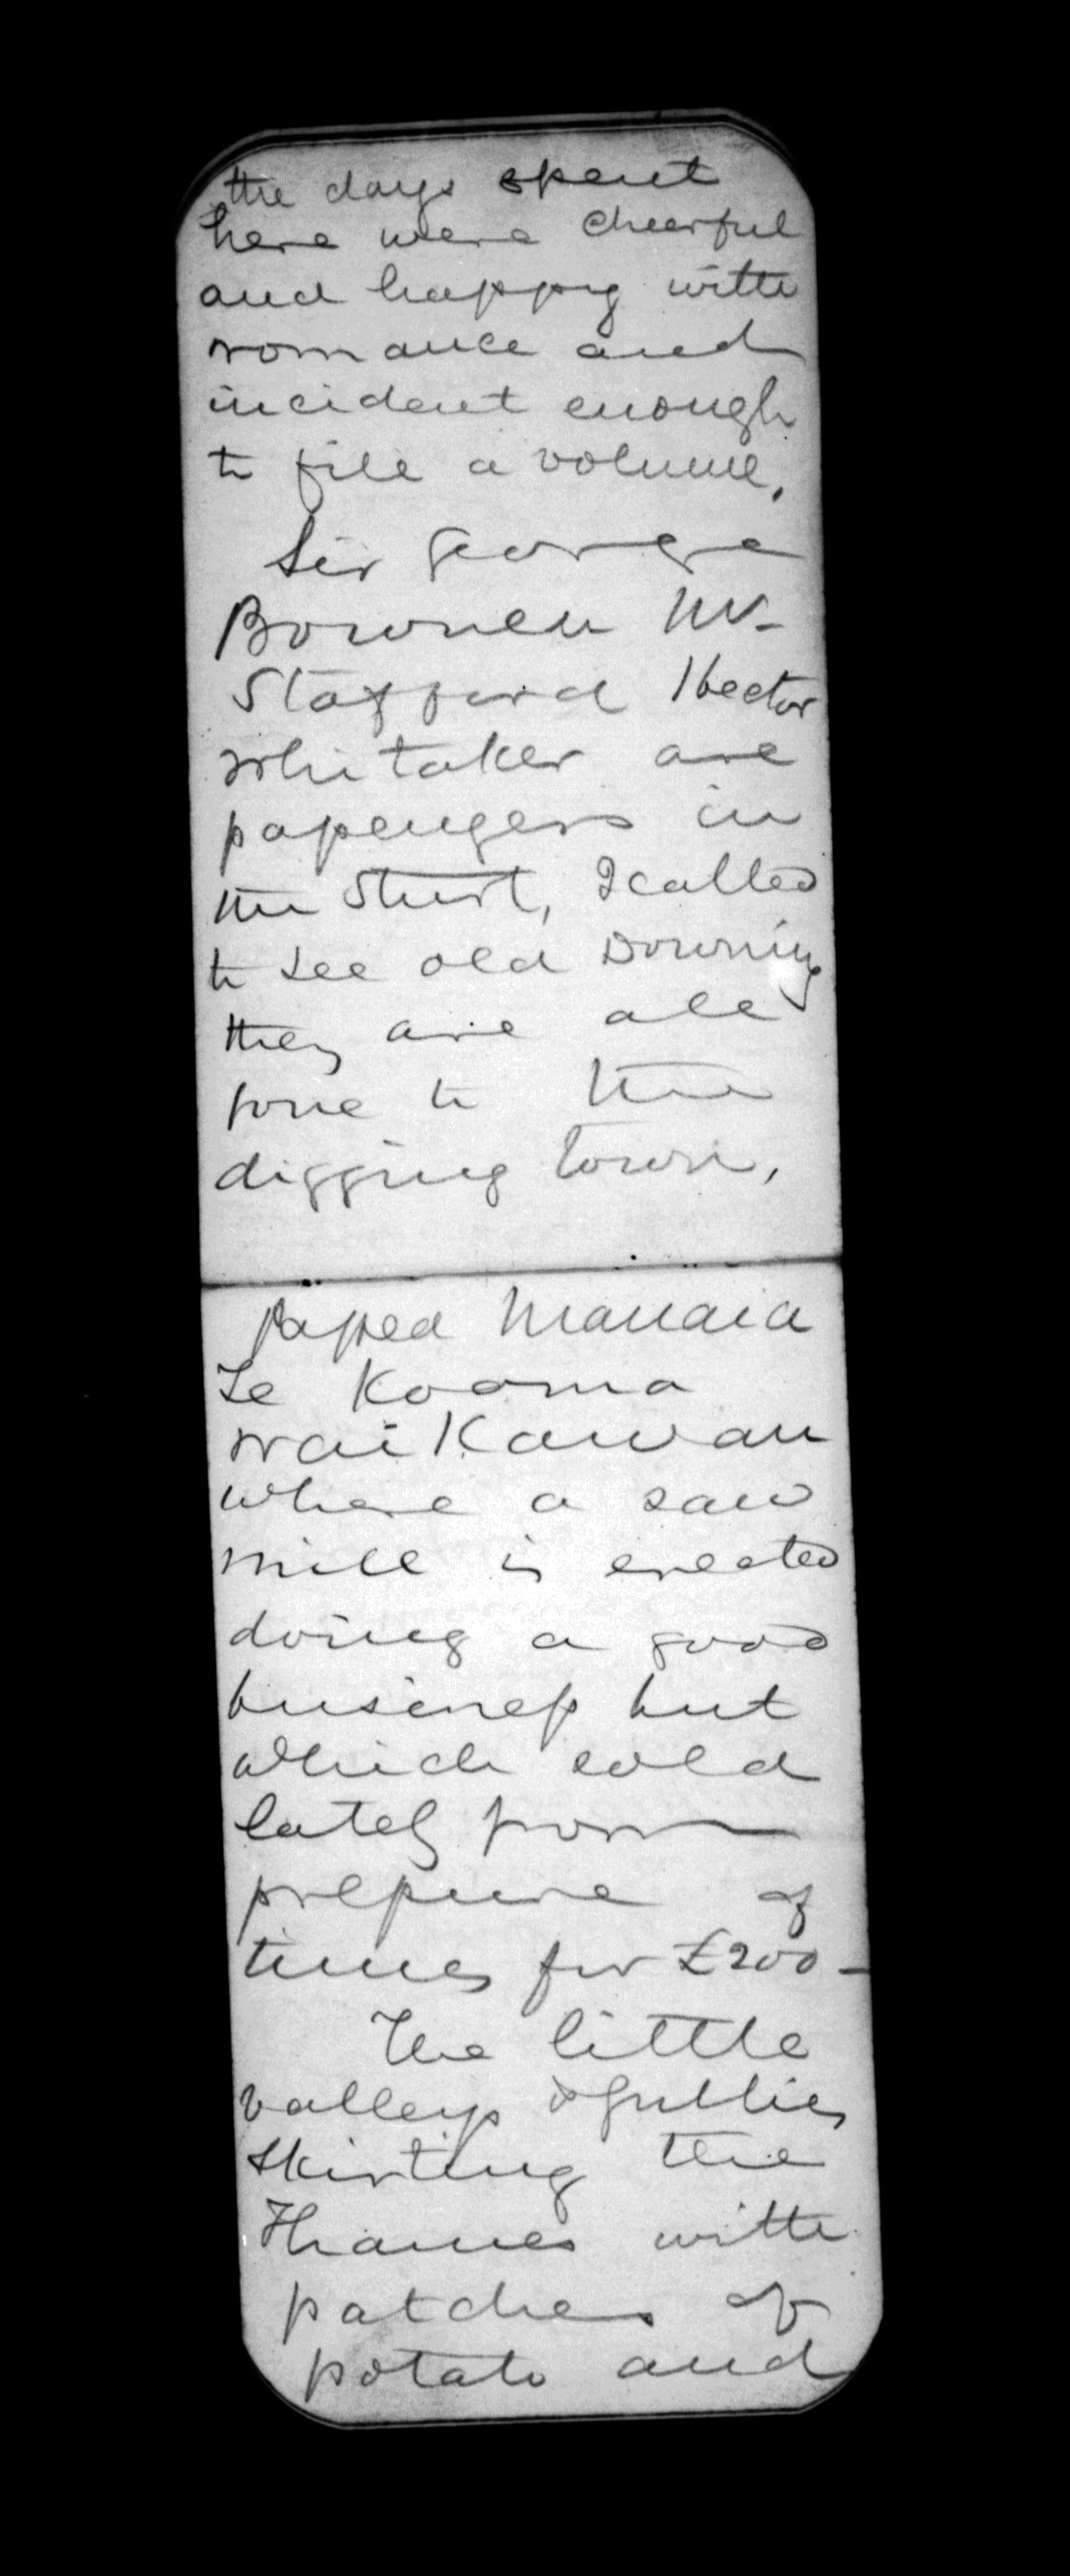 the days spent
here were cheerful
and happy with
romance and
incident enough
to fill a volume.
Sir George
Bownen Mr.
Stafford Hector
Whitaker are
passengers in
the Sturt, I called
to see old Downing
they are all
gone to the
digging town,
Passed Manaia
Te Kooma
Waikawau
where a saw
mill is erected
doing a good
business but
which sold
lately from
pressure of
times for £200-
The little
valleys & gullies
skirting the
Thames with
patches of
potato and